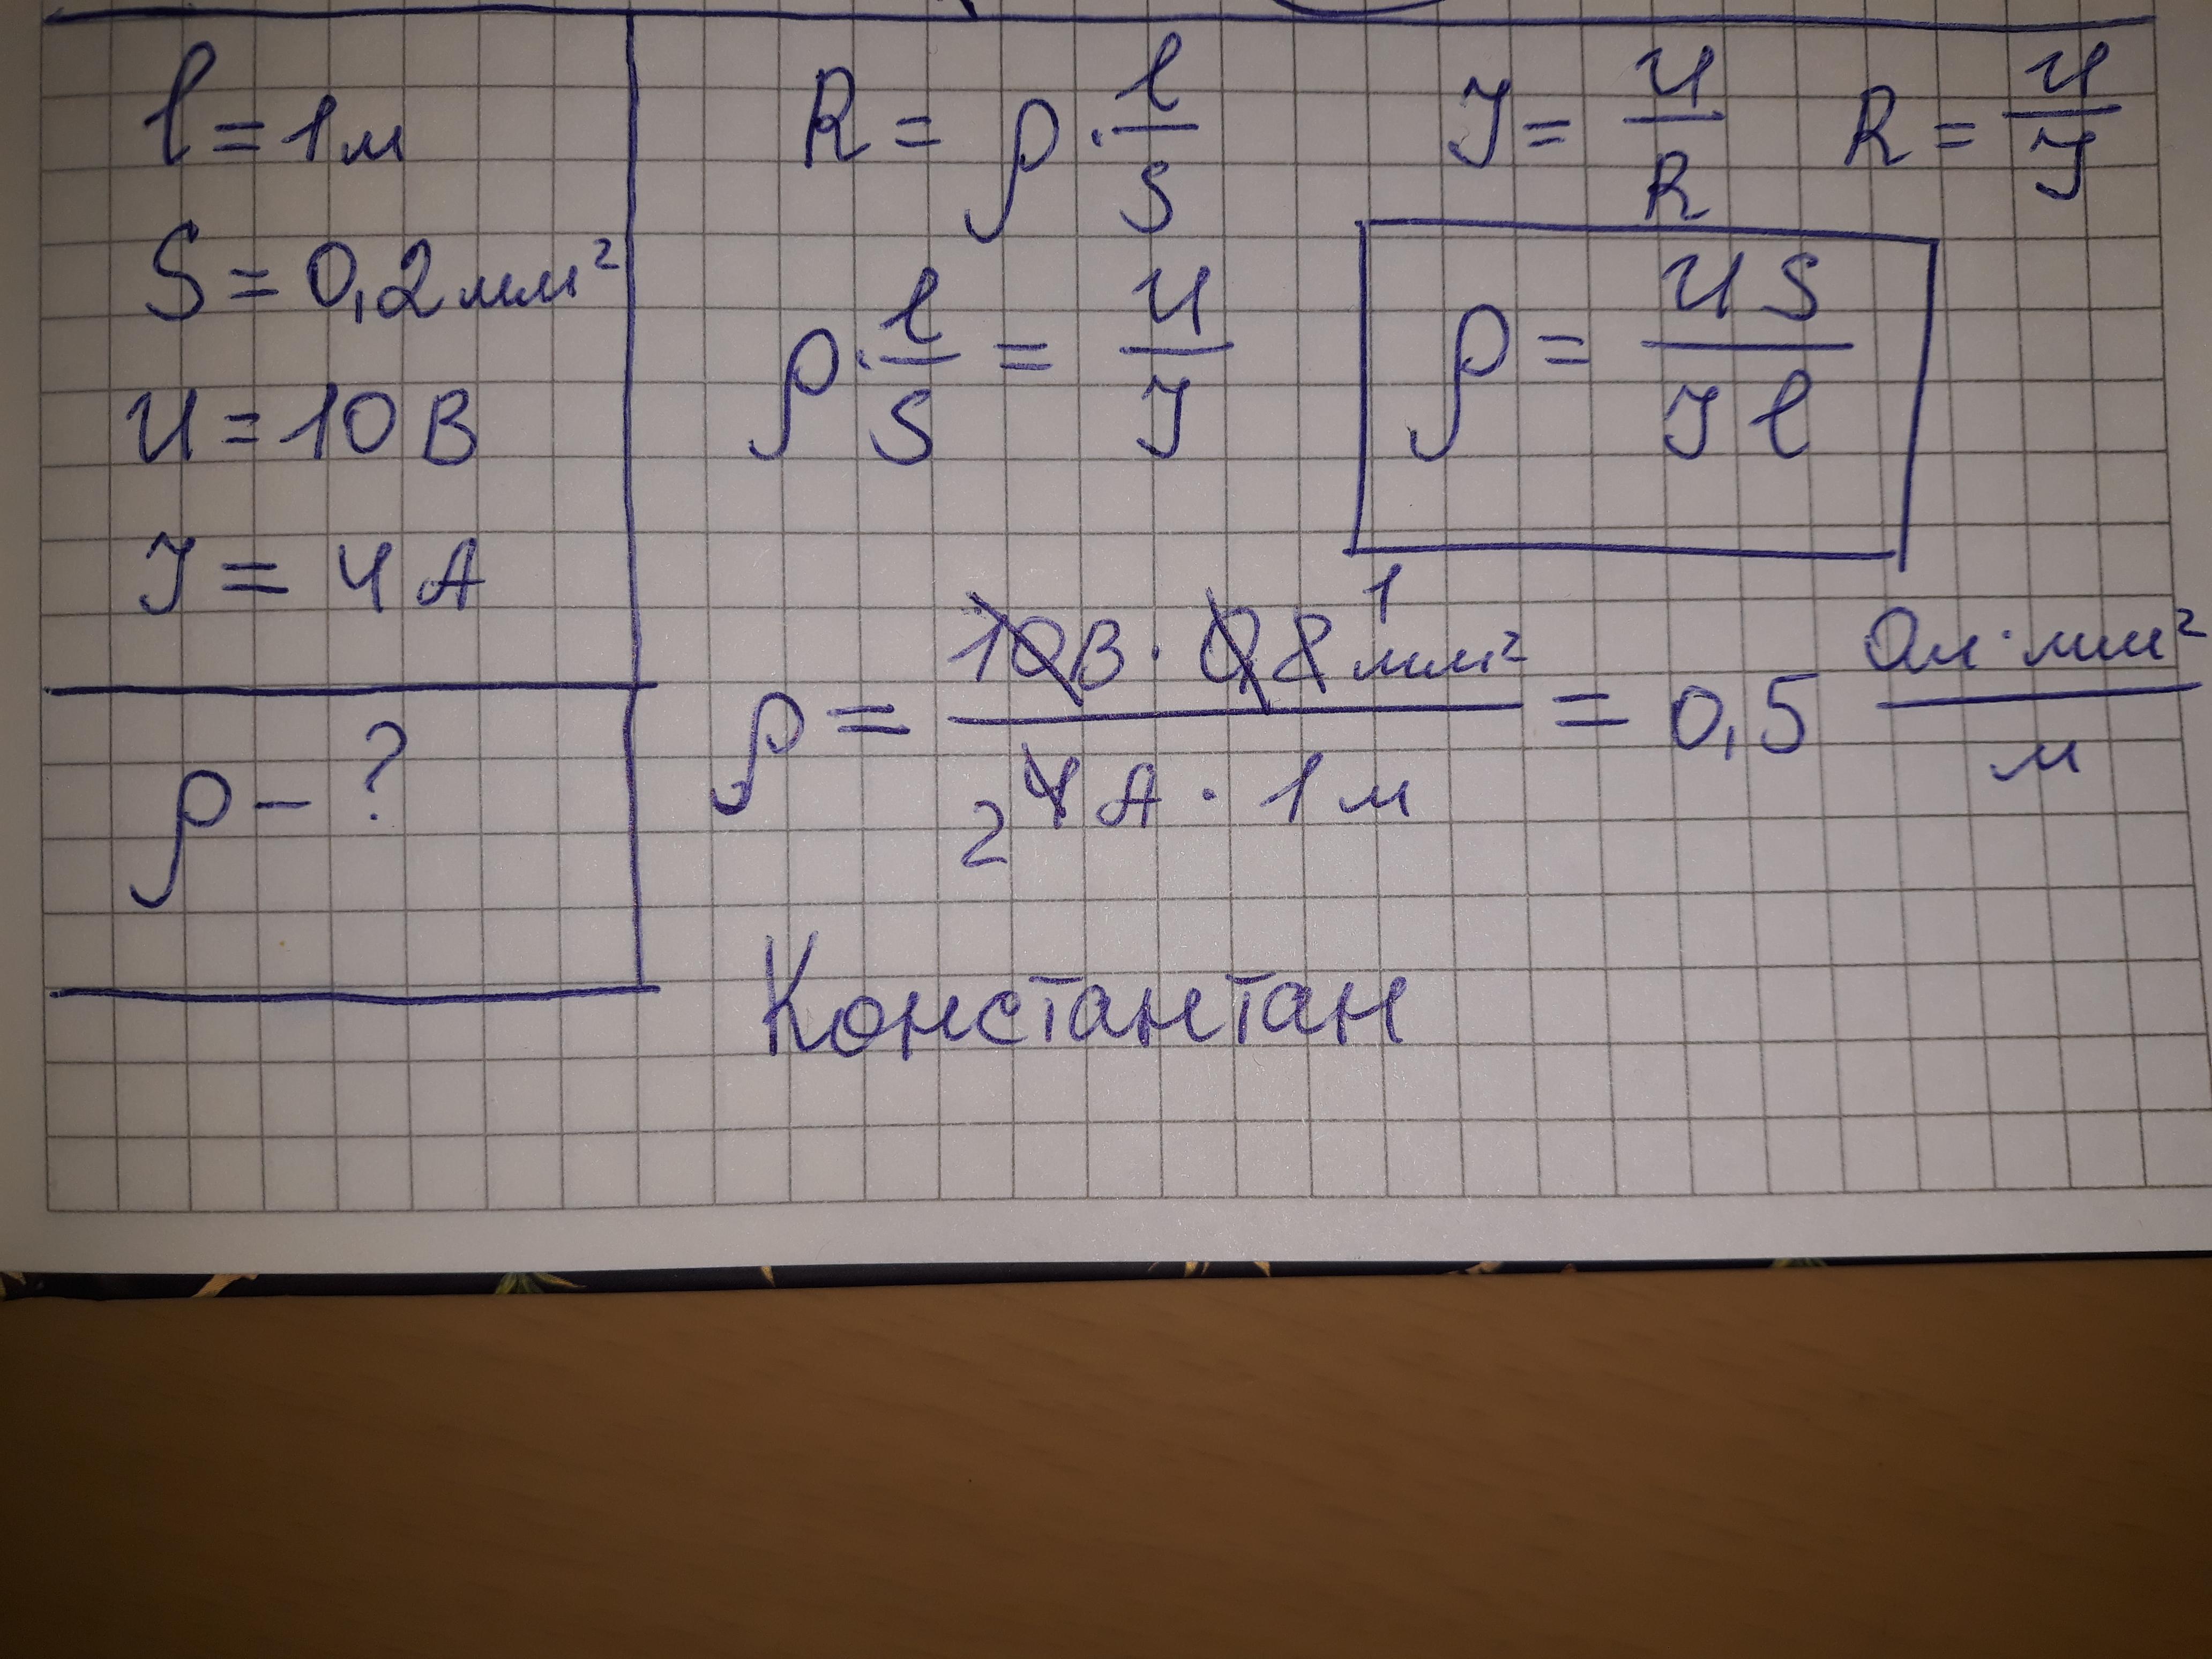 l = 1 м
S = 0,2 мм²
U = 10 В
I = 4 А
ρ - ?
R = ρ · l/S    I = U/R    R = U/I
ρ · l/S = U/I    ρ = US/Il
ρ = 10 В · 0,2 1 мм² / 2 4 А · 1 м = 0,5 Ом · мм²/м
Константан